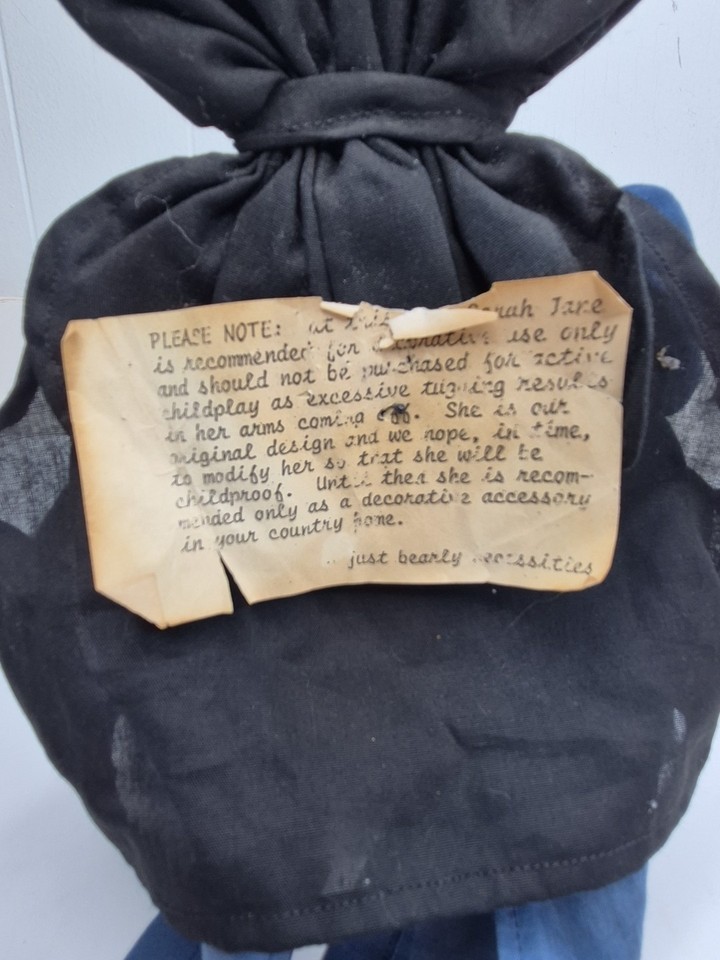 PLEASE NOTE: at this Sarah Jane
is recommended for decorative use only
and should not be purchased for active
childplay as excessive tugging results
in her arms coming off. She is our
original design and we hope, in time,
to modify her so that she will be
childproof. Until then she is recom-
mended only as a decorative accessory
in your country home.
just bearly necessities